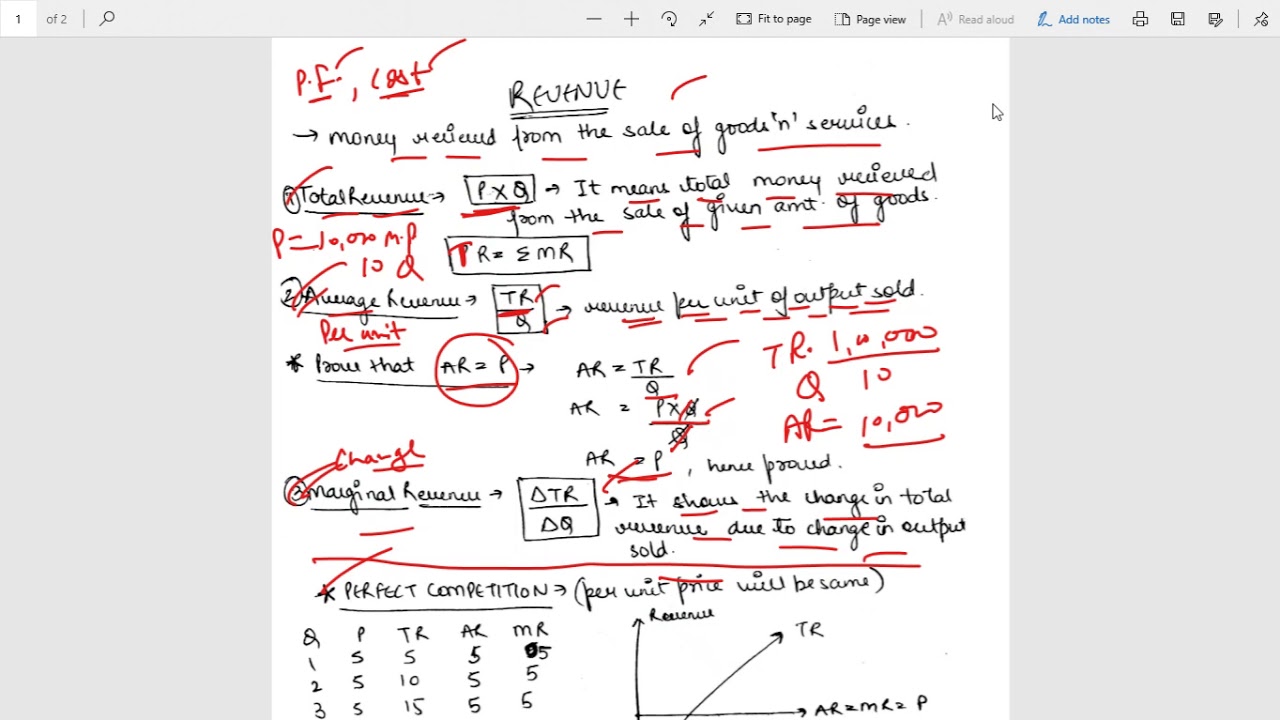 1 of 2 Fit to page Page view Read aloud Add notes
P.F., Cost
REVENUE
→ money recieved from the sale of goods 'n' services.
① Total Revenue → P X Q → It means total money recieved
from the sale of given amt. of goods.
P = 10,000 M.P
TR = Σ MR
10 Q
② Average Revenue → TR/Q → revenue per unit of output sold.
Per unit
TR. 1,00,000
* Prove that AR = P → AR = TR/Q
Q 10
AR = P X Q/Q
AR = 10,000
AR = P, hence proved.
Change
③ Marginal Revenue → ΔTR/ΔQ → It shows the change in total
revenue due to change in output
sold.
* PERFECT COMPETITION → (per unit price will be same)
Q P TR AR MR
1 5 5 5 5
2 5 10 5 5
3 5 15 5 5
Revenue
TR
AR=MR=P